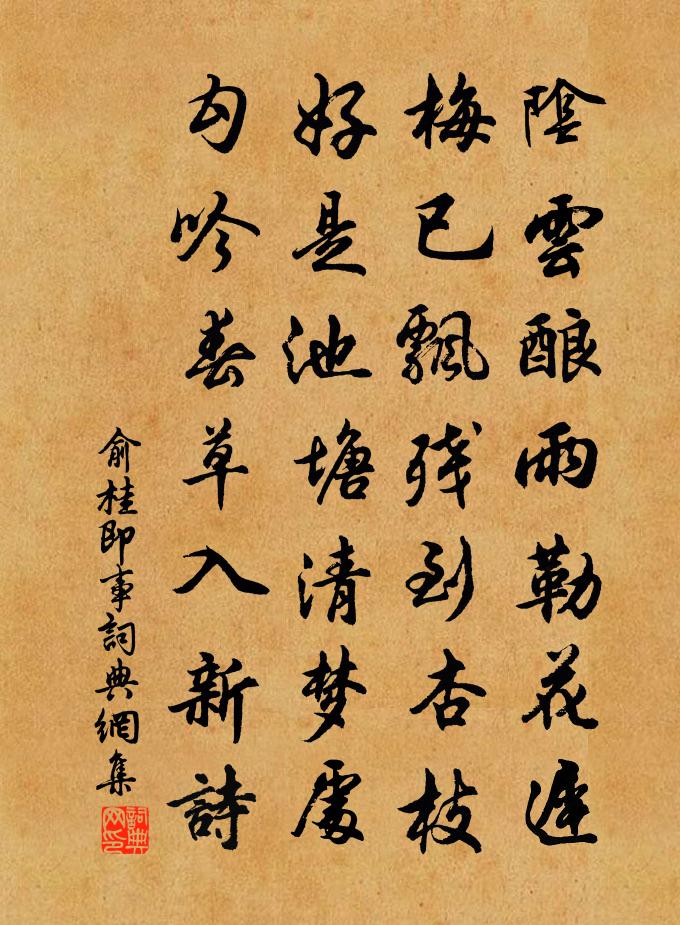 陰雲酿雨勒花遲
梅已飄残到杏枝
好是池塘清梦處
勾吟春草入新詩
俞桂即事詞典網集
詞典网印